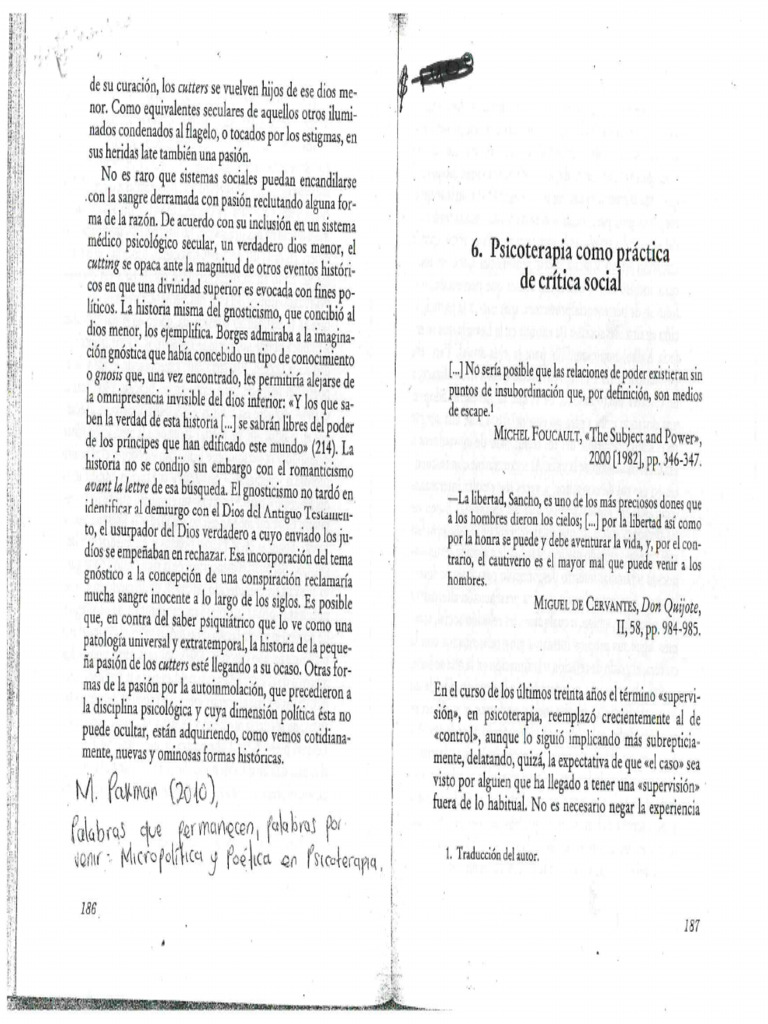 de su curación, los cutters se vuelven hijos de ese dios me-
nor. Como equivalentes seculares de aquellos otros ilumi-
nados condenados al flagelo, o tocados por los estigmas, en
sus heridas late también una pasión.
No es raro que sistemas sociales puedan encandilarse
con la sangre derramada con pasión reclutando alguna for-
ma de la razón. De acuerdo con su inclusión en un sistema
médico psicológico secular, un verdadero dios menor, el
cutting se opaca ante la magnitud de otros eventos históri-
cos en que una divinidad superior es evocada con fines po-
líticos. La historia misma del gnosticismo, que concibió al
dios menor, los ejemplifica. Borges admiraba a la imagina-
ción gnóstica que había concebido un tipo de conocimiento
o gnosis que, una vez encontrado, les permitiría alejarse de
la omnipresencia invisible del dios inferior: «Y los que sa-
ben la verdad de esta historia [...] se sabrán libres del poder
de los príncipes que han edificado este mundo» (214). La
historia no se condijo sin embargo con el romanticismo
avant la lettre de esa búsqueda. El gnosticismo no tardó en
identificar al demiurgo con el Dios del Antiguo Testamen-
to, el usurpador del Dios verdadero a cuyo enviado los ju-
díos se empeñaban en rechazar. Esa incorporación del tema
gnóstico a la concepción de una conspiración reclamaría
mucha sangre inocente a lo largo de los siglos. Es posible
que, en contra del saber psiquiátrico que lo ve como una
patología universal y extratemporal, la historia de la peque-
ña pasión de los cutters esté llegando a su ocaso. Otras for-
mas de la pasión por la autoinmolación, que precedieron a
la disciplina psicológica y cuya dimensión política ésta no
puede ocultar, están adquiriendo, como vemos cotidiana-
mente, nuevas y ominosas formas históricas.
M. Pakman (2010),
Palabras que permanecen, palabras por
venir: Micropolítica y Poética en Psicoterapia.
186
6. Psicoterapia como práctica
de crítica social
[...] No sería posible que las relaciones de poder existieran sin
puntos de insubordinación que, por definición, son medios
de escape.1
MICHEL FOUCAULT, «The Subject and Power»,
2000 [1982], pp. 346-347.
—La libertad, Sancho, es uno de los más preciosos dones que
a los hombres dieron los cielos; [...] por la libertad así como
por la honra se puede y debe aventurar la vida, y, por el con-
trario, el cautiverio es el mayor mal que puede venir a los
hombres.
MIGUEL DE CERVANTES, Don Quijote,
II, 58, pp. 984-985.
En el curso de los últimos treinta años el término «supervi-
sión», en psicoterapia, reemplazó crecientemente al de
«control», aunque lo siguió implicando más subrepticia-
mente, delatando, quizá, la expectativa de que «el caso» sea
visto por alguien que ha llegado a tener una «supervisión»
fuera de lo habitual. No es necesario negar la experiencia
1. Traducción del autor.
187